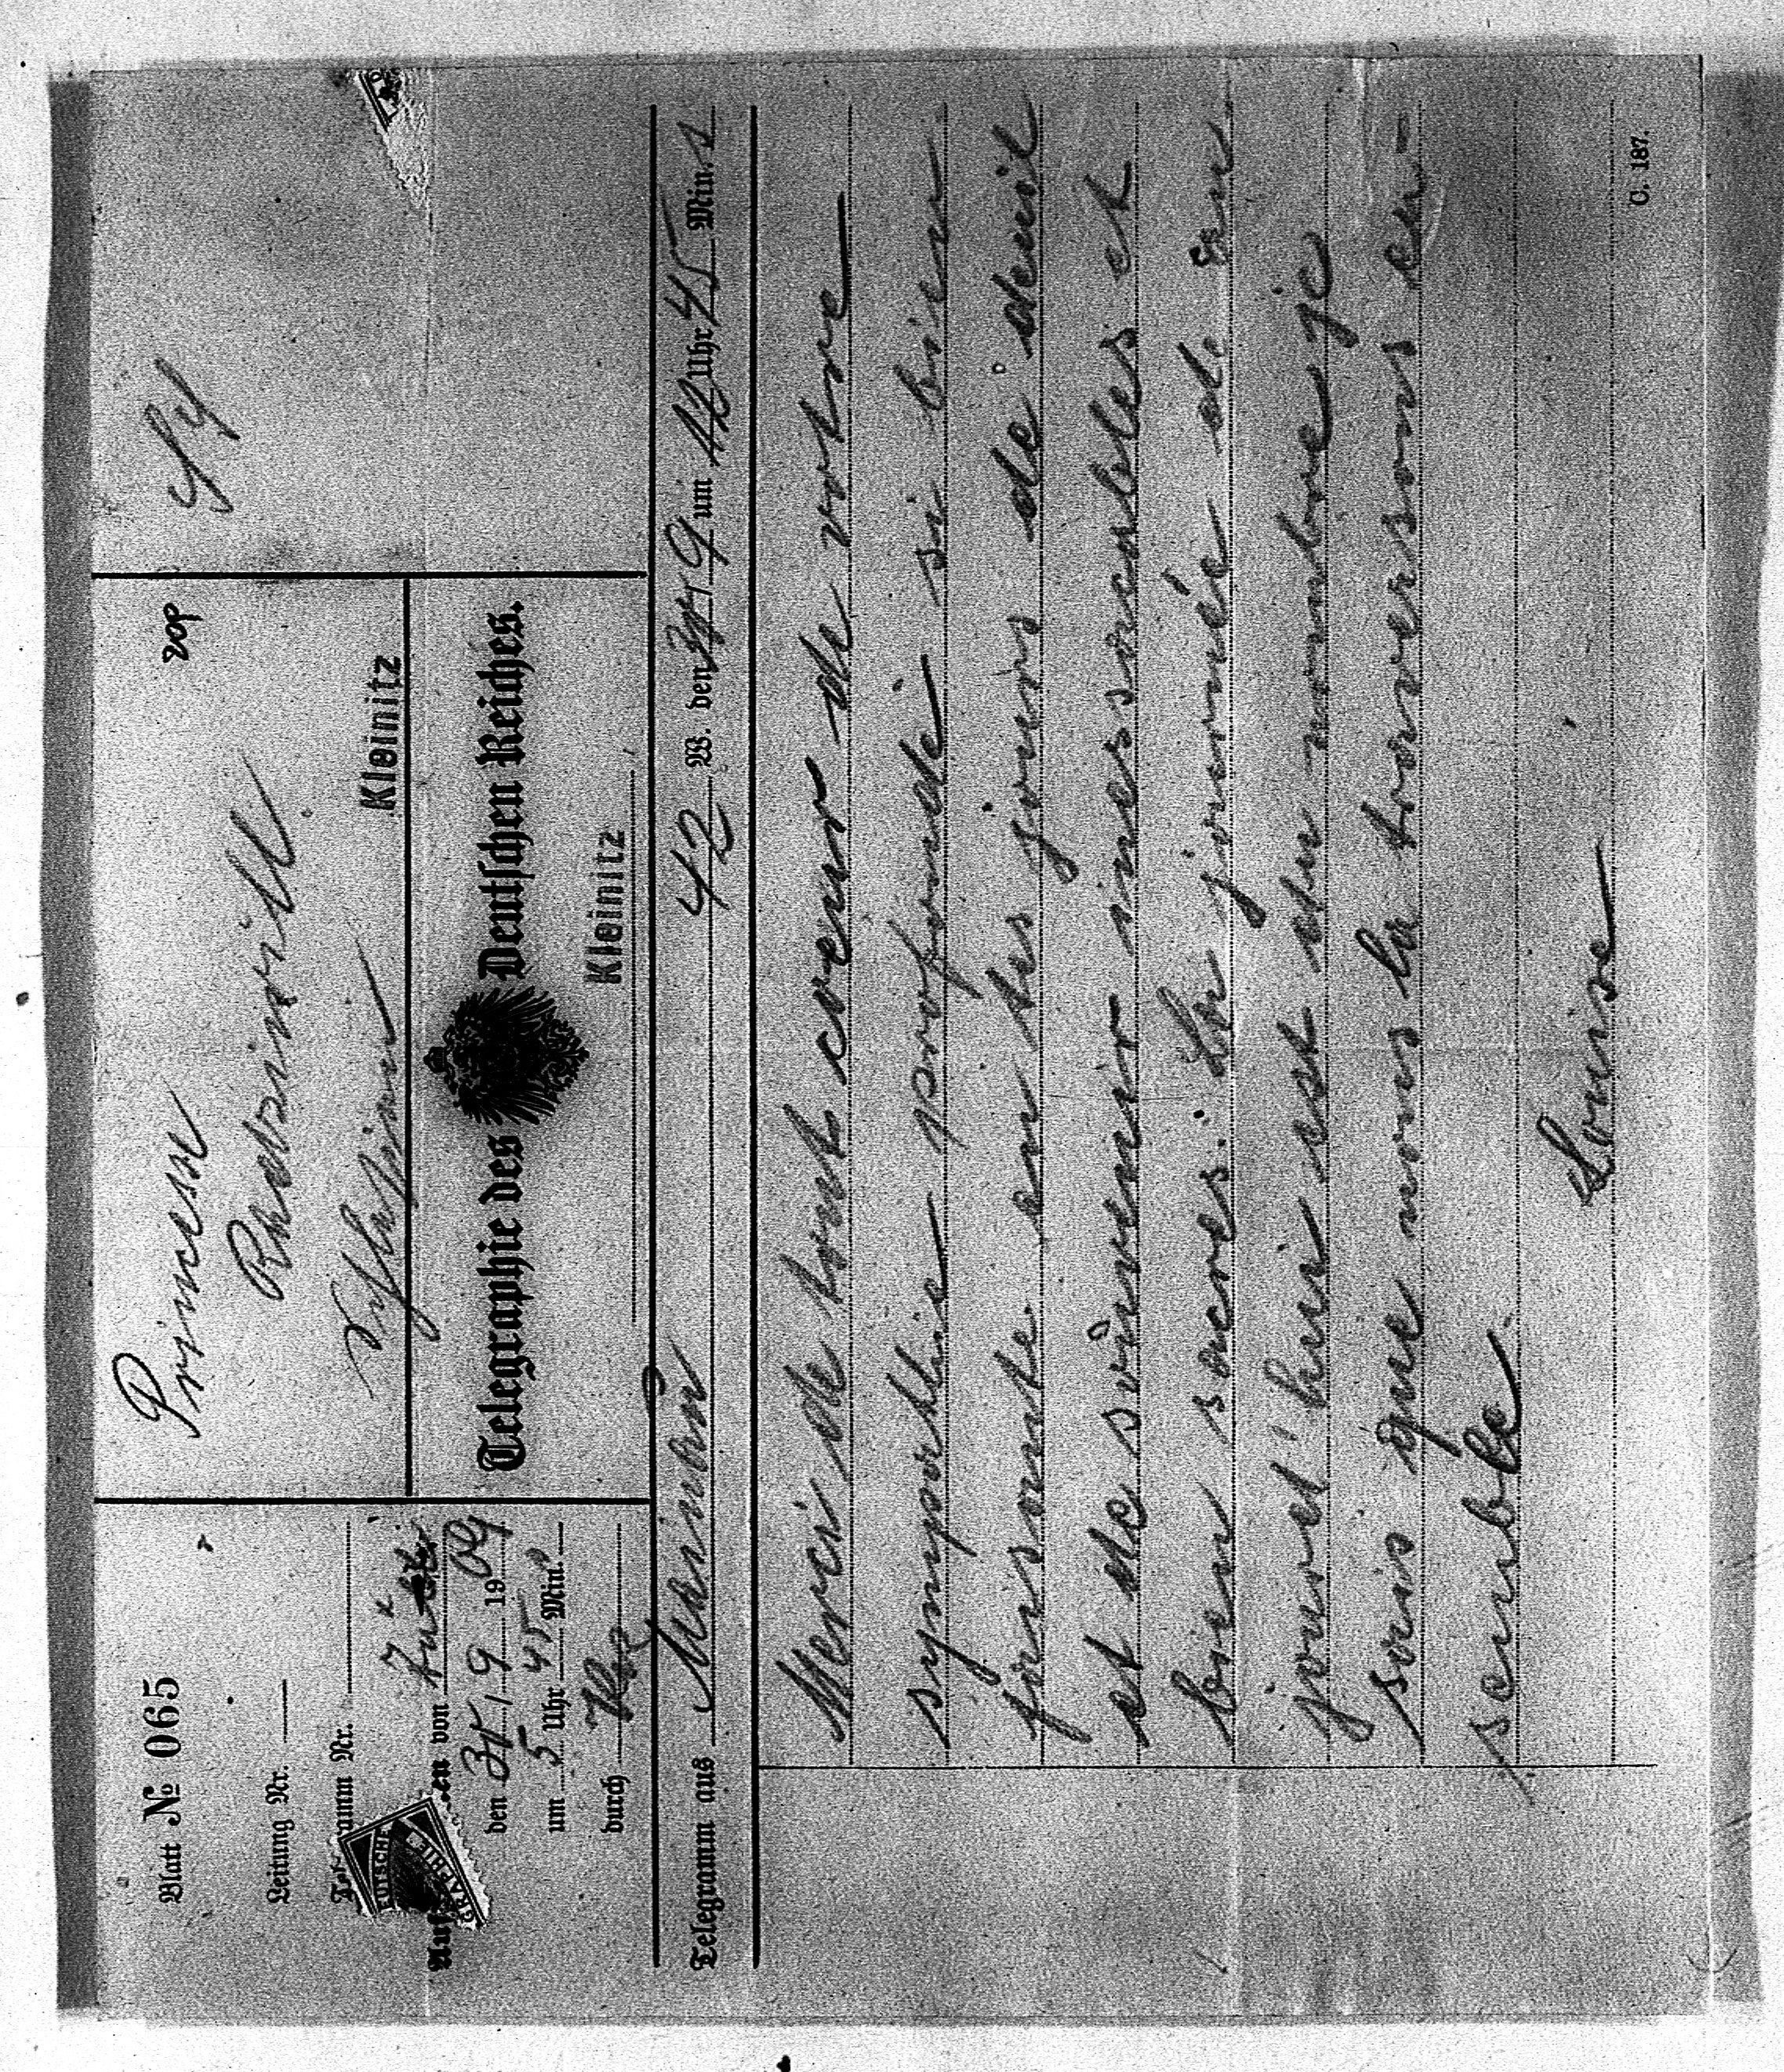 Blatt № 065
Leitung Nr.
Telegramm Nr.
Aufgenommen von
den 3/9 1909
um 5 Uhr 45 Min.
durch
Princesse
Radziwill
Kleinitz
Telegraphie des Deutschen Reiches.
Kleinitz
Telegramm aus 42 W. den 9 um 12 Uhr 45 Min. s
Merci de tout coeur de votre
sympathie profonde si bien
faisante en tes jours de deuil
et de souvenir inessoables et
bien sacres. La journée d.
jouret' hui est au nombre je
sais que nous la traversons en-
semble.
Louise
C. 187.